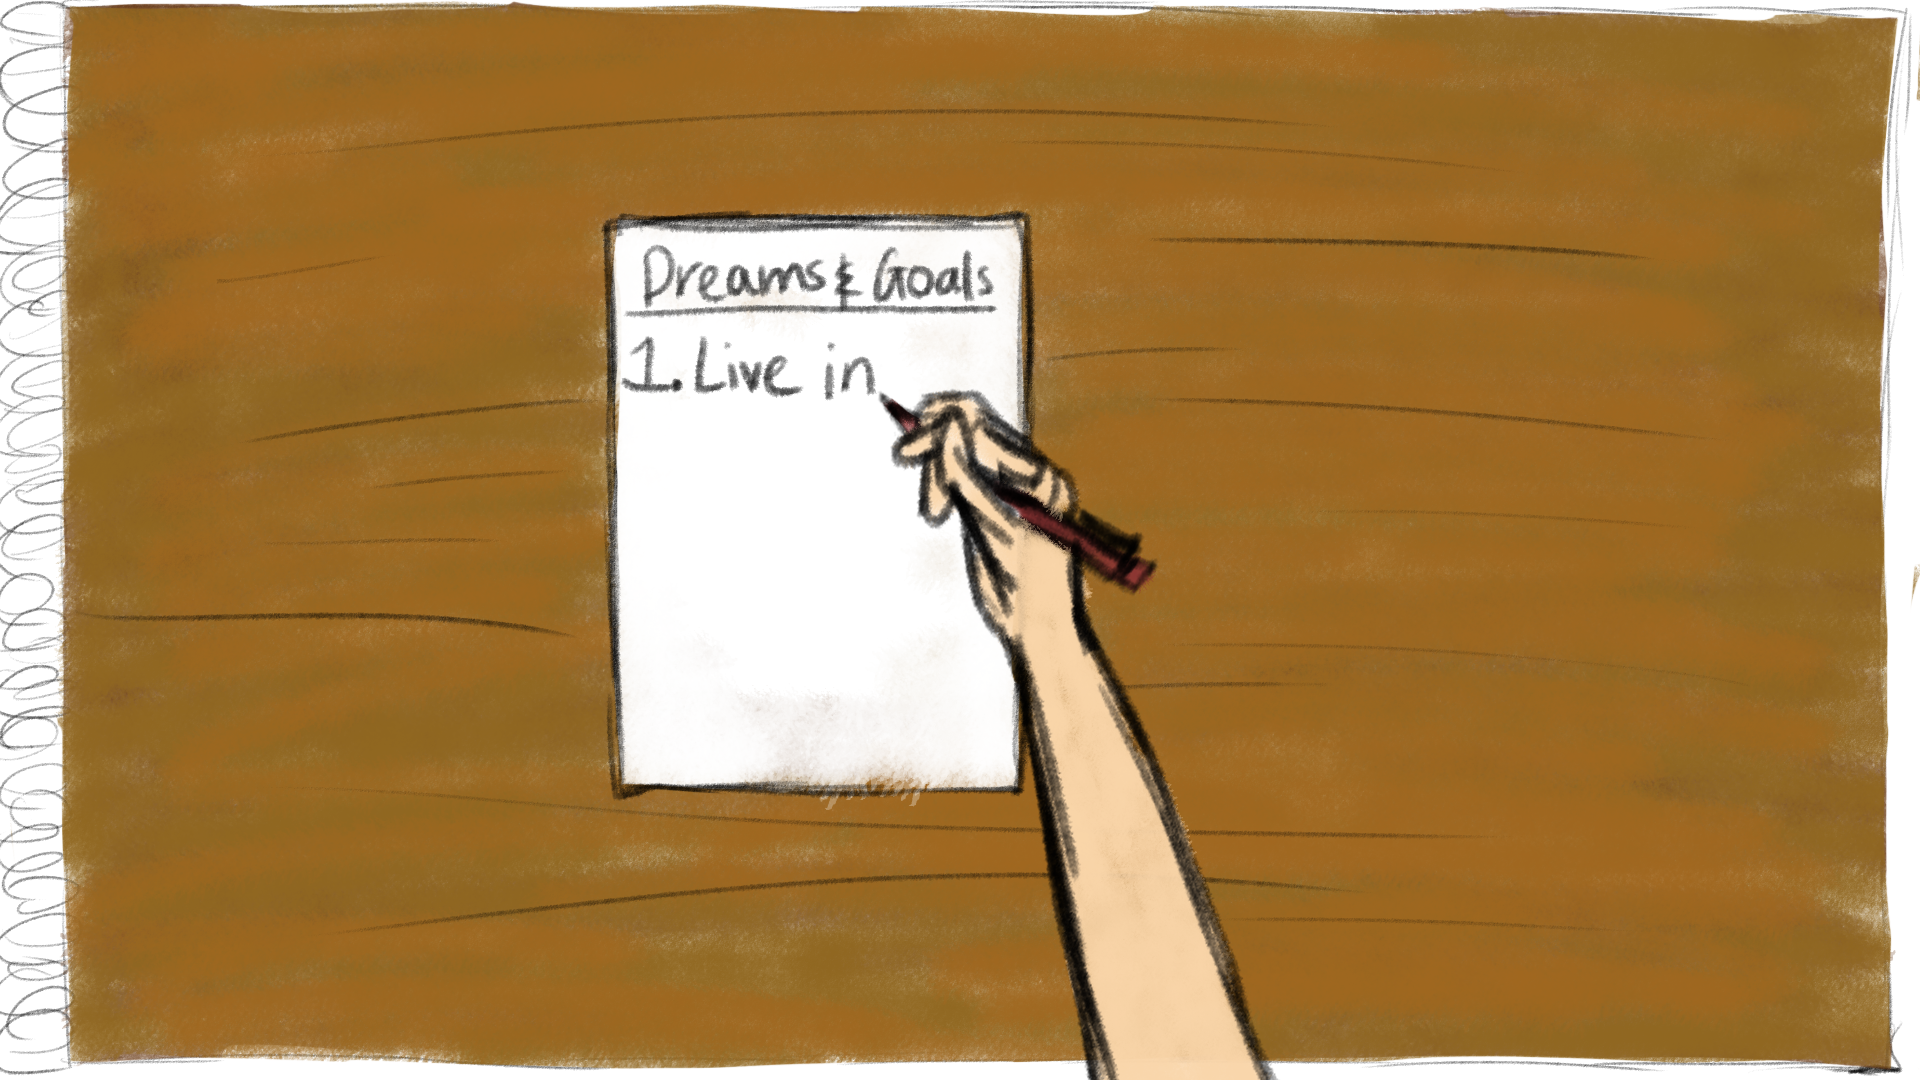 Dreams & Goals
1. Live in